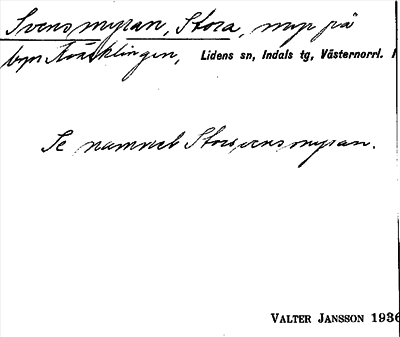 Svensmyran, Stora, myr på
byn Kväcklingen, Lidens sn, Indals tg, Västernorrl. l
Se namnet Storsvensmyran.
VALTER JANSSON 1936